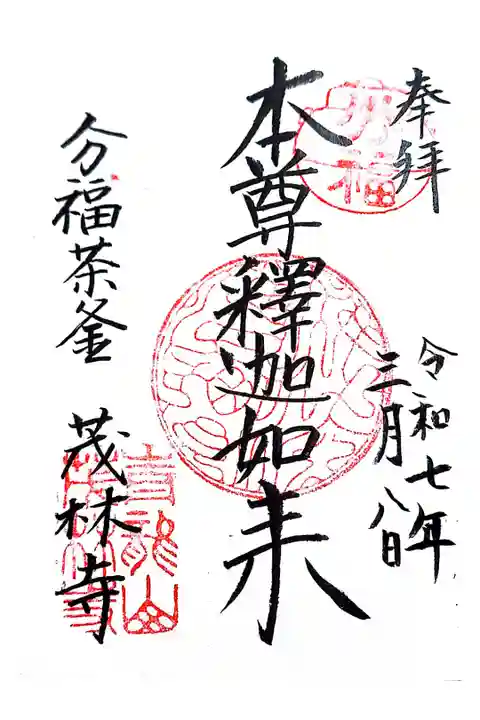 奉拝
令和七年
三月八日
本尊釋迦如来
分福茶釜
茂林寺
分福
青龍山